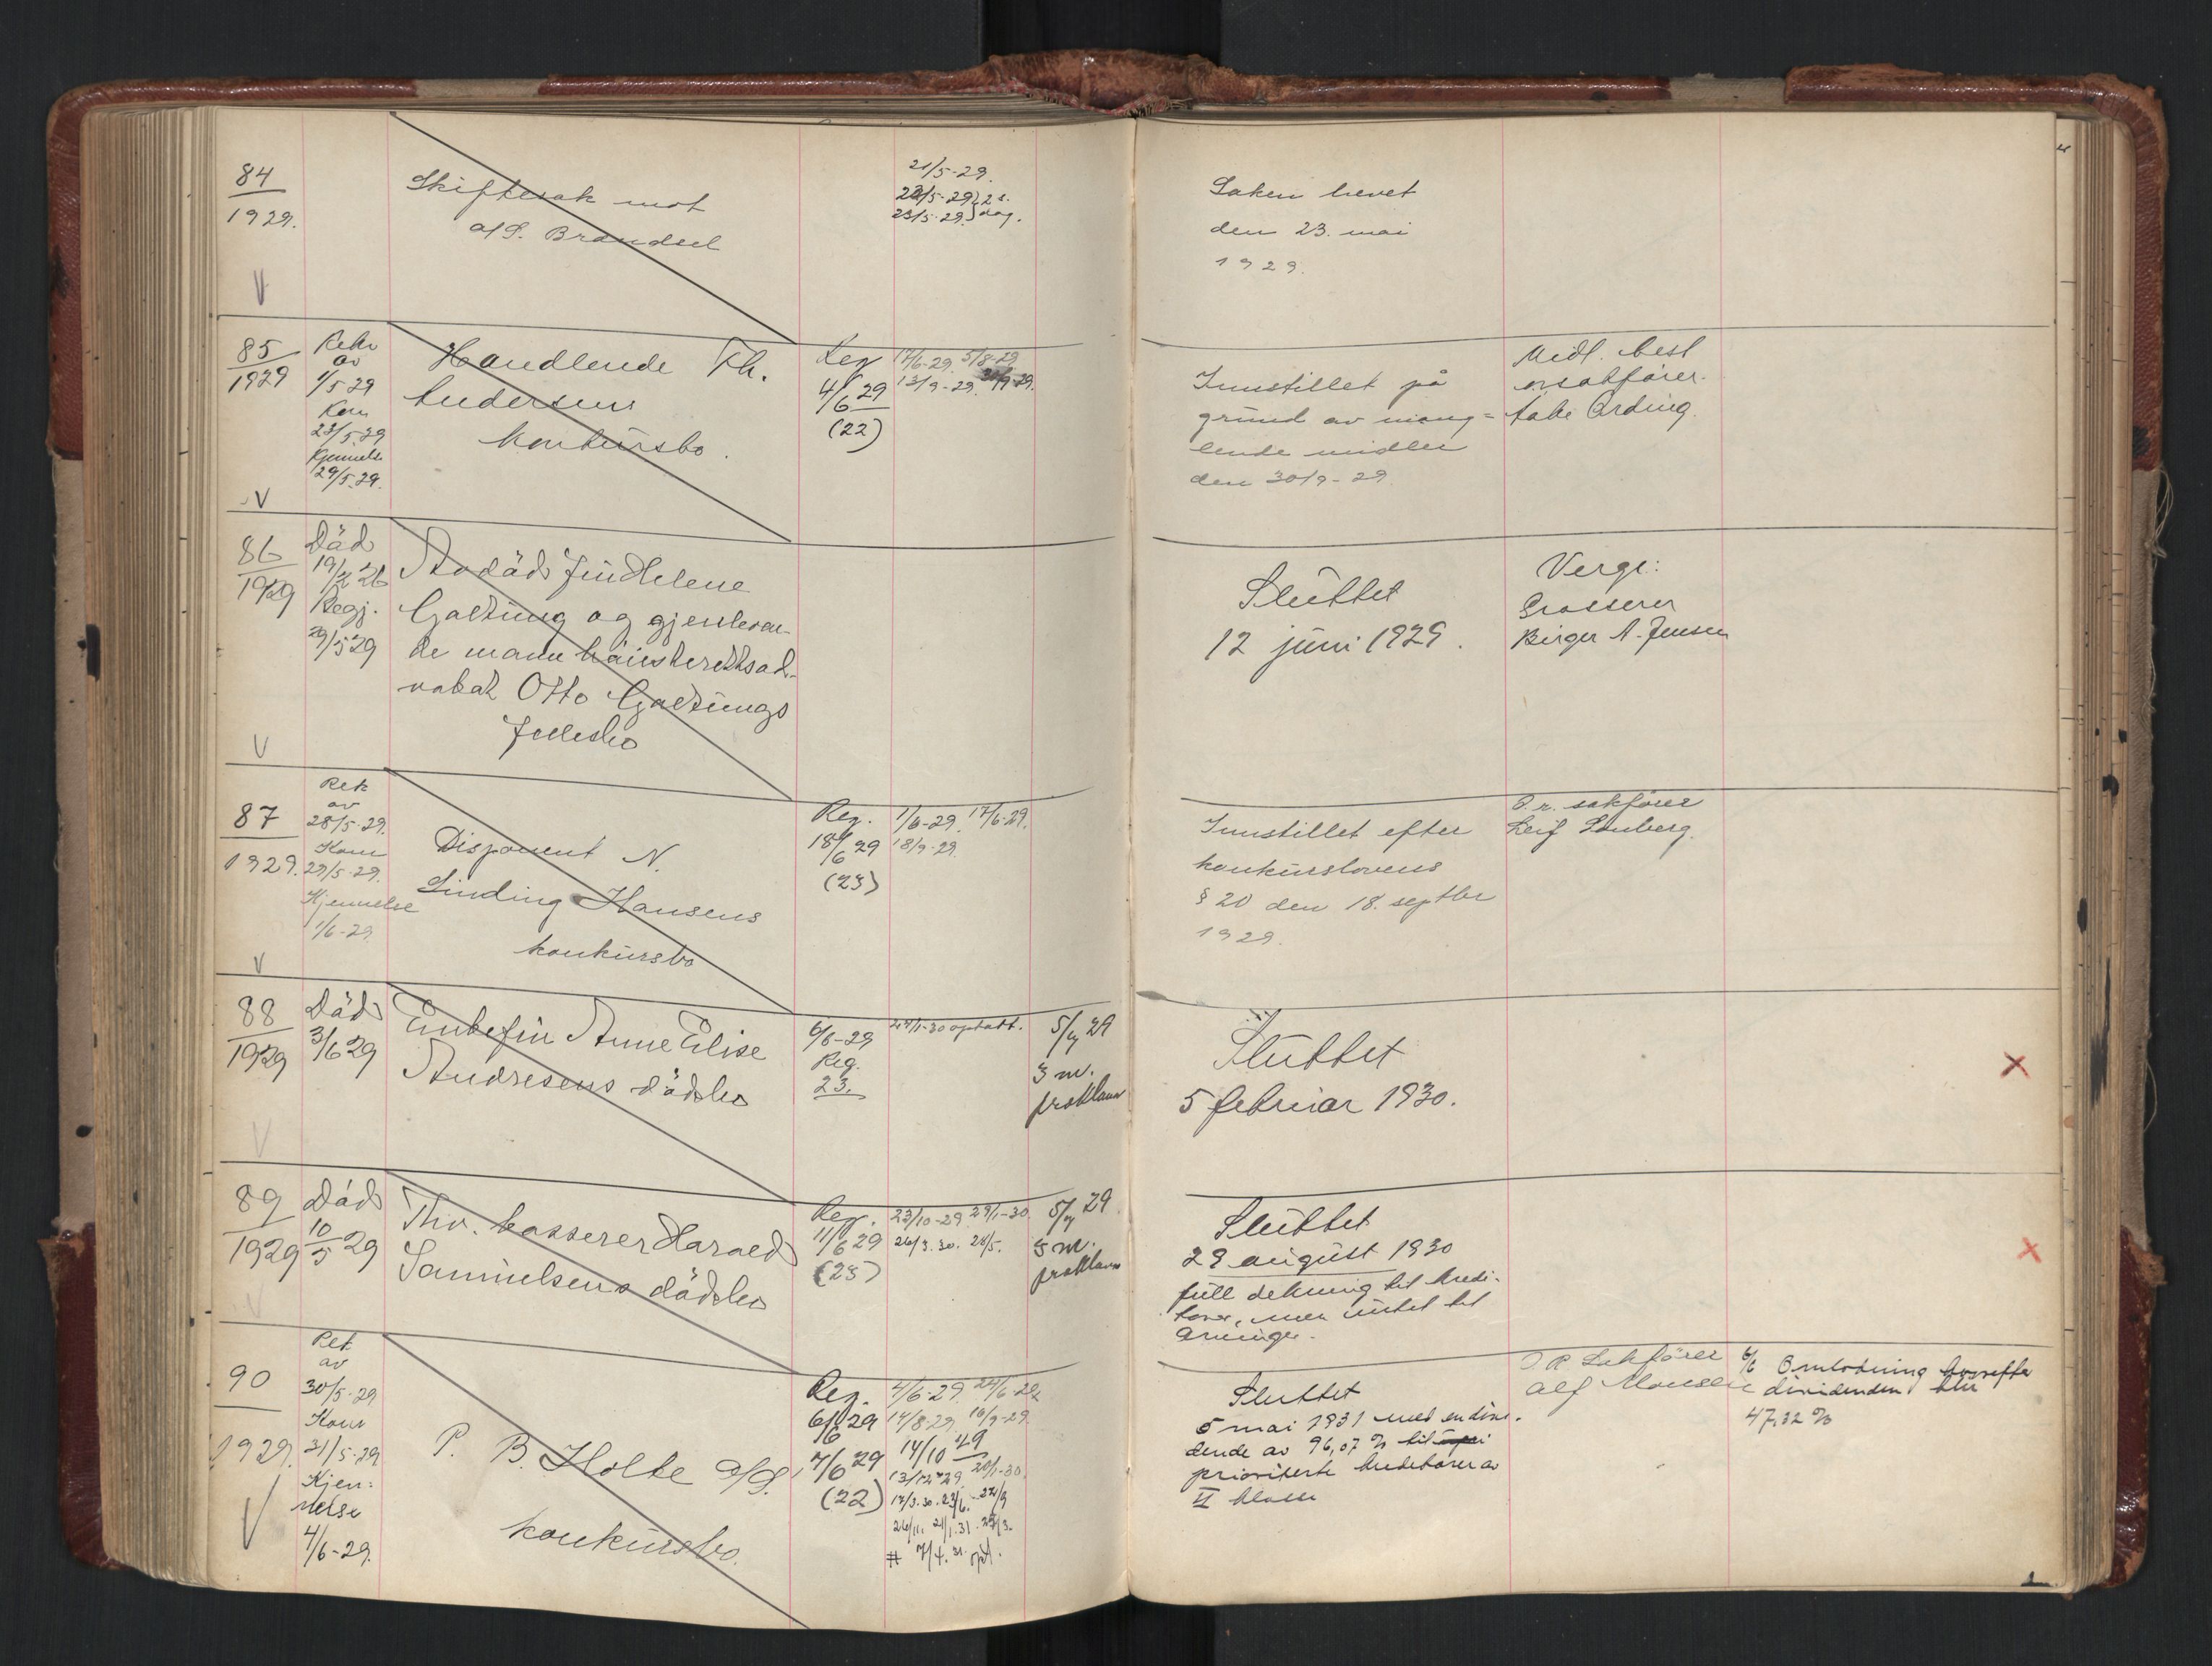 84
1929.
Skiftesak mot
a/S. Brændsel
21/5-29.
22/5-29 } 2 s.
23/5-29. } dag.
Saken hevet
den 23. mai
1929.
V
85
1929
Rekv
av
1/5 29
Kom
23/5 29
Kjennelse
29/5.29.
Handlende Th.
Andersens
konkursbo.
Reg
4/6 29
(22)
17/6-29. 5/8-29
13/9-29. 30/9-29.
Innstillet på
grund av mang=
lende midler
den 30/9-29.
Midl. best
o.r.sakfører
Arding.
V
86
1929
Död
19/2 26
Regj.
29/5 29
Avdöde fru Helene
Galtung og gjenlevan-
de mann höiesterettsad-
vokat Otto Galtungs
fellesbo
Sluttet
12 juni 1929.
Verge:
Grosserer
Birger A. Jensen
V
87
1929.
Rek
av
28/5-29.
Kom
29/5-29.
Kjennelse
1/6-29
Disponent N.
Linding Hansens
konkursbo
Reg.
18/6 29
(23)
1/6-29. 17/6-29.
18/9-29.
Innstillet efter
konkurslovens
§ 20 den 18. septbr
1929.
O. r. sakfører
Leif
V
88
1929
Död
3/6 29
Enkefru Anne Elise
Andresens dödsbo
6/6-29
Reg.
23.
27/1-30 optatt.
5/7 29
3 m.
proklama
Sluttet
5 februar 1930.
X
V
89
1929
Död
10/5 29
Fhv. kasserer Harald
Samuelsens dödsbo
Reg.
11/6 29
(23)
23/10-29. 29/1-30.
26/3.30. 28/5.
5/7 29
3 m.
proklama
Sluttet
29 august 1930
full dekning til kredi-
torer, men intet til
arvinger.
X
V
90
1929.
Rek
av
30/5-29
Kom
31/5-29
Kjen=
nelse
4/6-29.
P. B. Holte a/S.
konkursbo.
Reg.
6/6 29
7/6 29
(22)
4/6-29. 24/6-29
14/8-29. 16/9-29.
14/10 29
13/12 29 20/1-30.
17/3.30. 23/6. 22/9
26/11. 21/1.31. 27/3.
# 7/4.31. opt.
Sluttet
5 mai 1931 med en divi-
dende av 96,07 % til
prioriterte kreditorer av
II klasse
O. R. Sakfører
Alf Monsen
6/6 Omlodning hvorefter
dividenden blir
47,32 %
V